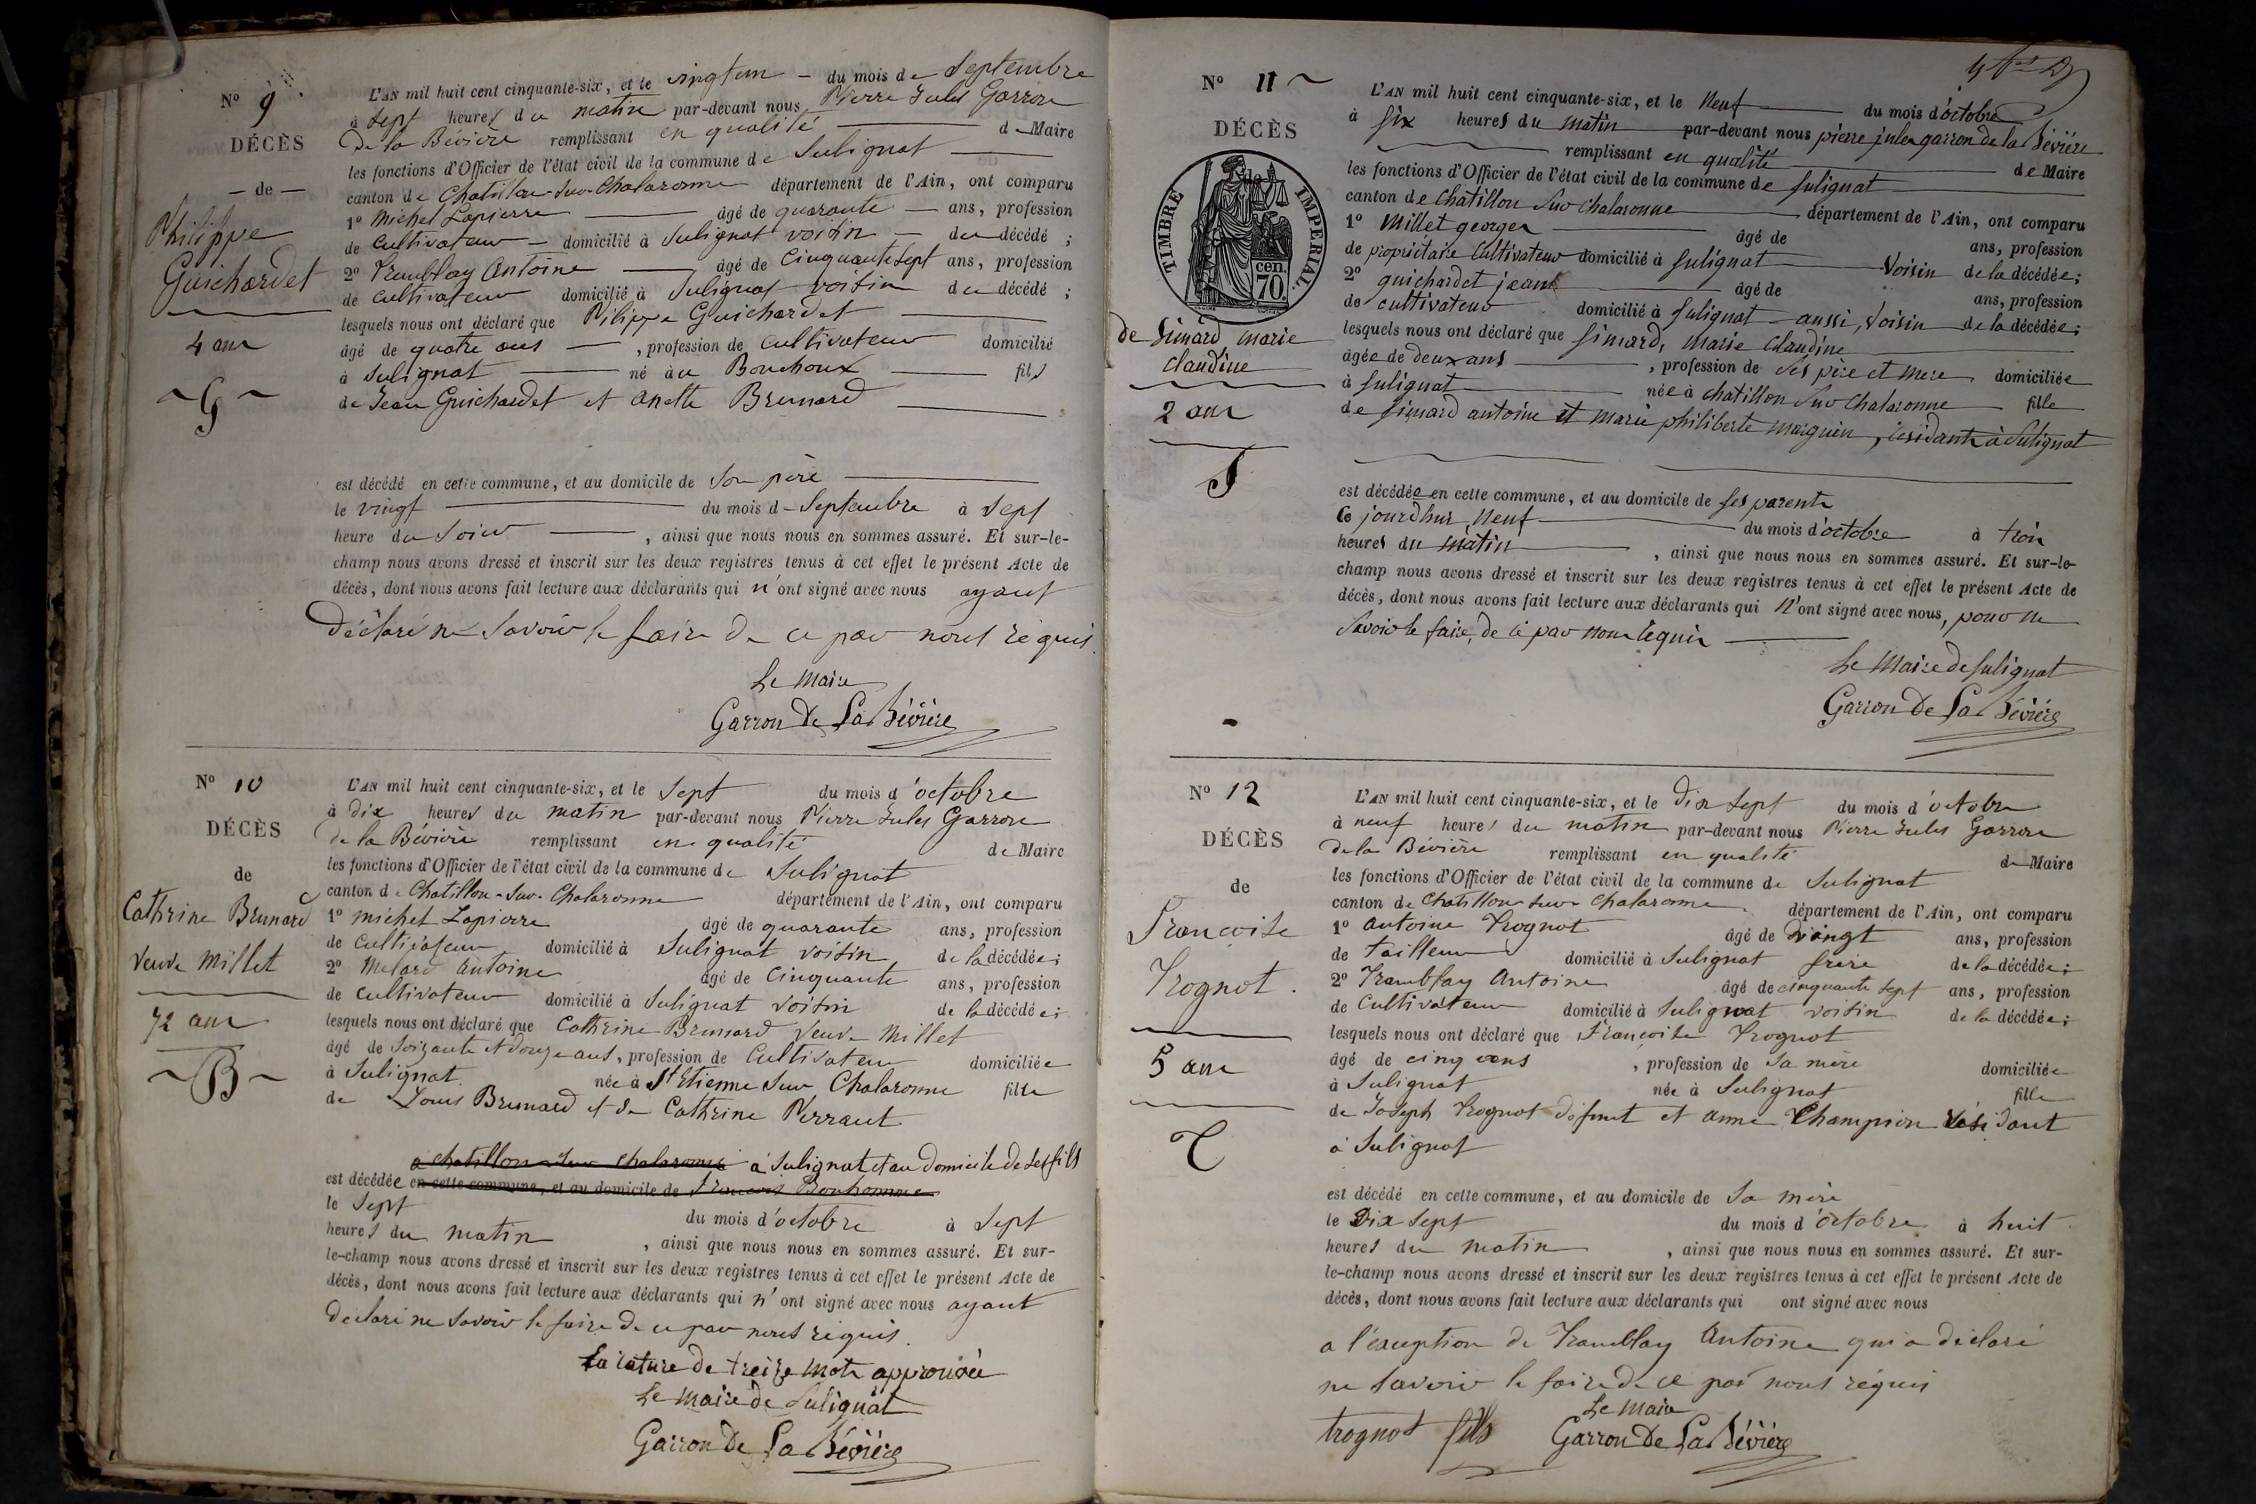 N° 9
DÉCÈS
— de —
Philippe
Guichardet
4 ans
G
L'AN mil huit cent cinquante-six, et le vingt un — du mois de Septembre
à Sept heures du matin par-devant nous Pierre Jules Garron
de la Bévière remplissant en qualité de Maire
les fonctions d'Officier de l'état civil de la commune de Sulignat
canton de Chatillon-Sur-Chalaronne département de l'Ain, ont comparu
1° Michel Lapierre âgé de quarante ans, profession
de Cultivateur domicilié à Sulignat voisin du décédé ;
2° Tremblay Antoine âgé de Cinquante sept ans, profession
de Cultivateur domicilié à Sulignat voisin du décédé ;
lesquels nous ont déclaré que Pilippe Guichardet
âgé de quatre ans , profession de Cultivateur domicilié
à Sulignat né au Bouchoux fils
de Jean Guichardet et Anette Brunard
est décédé en cette commune, et au domicile de Son père
le vingt du mois d Septembre à Sept
heure du Soir , ainsi que nous nous en sommes assuré. Et sur-le-
champ nous avons dressé et inscrit sur les deux registres tenus à cet effet le présent Acte de
décès, dont nous avons fait lecture aux déclarants qui n'ont signé avec nous ayant
déclaré ne Savoir le faire De ce par nous requis.
Le Maire
Garron De La Bévière
N° 10
DÉCÈS
de
Cathrine Brunard
Veuve Millet
72 ans
B
L'AN mil huit cent cinquante-six, et le Sept du mois d'octobre
à dix heures du matin par-devant nous Pierre Jules Garron
de la Bévière remplissant en qualité de Maire
les fonctions d'Officier de l'état civil de la commune de Sulignat
canton de Chatillon-Sur-Chalaronne département de l'Ain, ont comparu
1° Michel Lapierre âgé de quarante ans, profession
de Cultivateur domicilié à Sulignat voisin de la décédée ;
2° Antoine âgé de Cinquante ans, profession
de Cultivateur domicilié à Sulignat voisin de la décédée ;
lesquels nous ont déclaré que Cathrine Brunard Veuve Millet
âgé de Soixante et Douze ans, profession de Cultivateur domiciliée
à Sulignat née à St Etienne Sur Chalaronne fille
de Louis Brunard et de Cathrine Perraut
a chatillon sur chalaronne à Sulignat et au Domicile de Ses fils
est décédée en cette commune, et au domicile de François Bonhomme
le Sept du mois d'octobre à Sept
heures du matin , ainsi que nous nous en sommes assuré. Et sur-
le-champ nous avons dressé et inscrit sur les deux registres tenus à cet effet le présent Acte de
décès, dont nous avons fait lecture aux déclarants qui n'ont signé avec nous ayant
déclaré ne Savoir le faire De ce par nous requis.
La rature de treize mots approuvée
Le Maire de Sulignat
Garron De La Bévière
N° 11
DÉCÈS
TIMBRE IMPERIAL
70 cen.
de Simard marie
claudine
2 ans
S
L'AN mil huit cent cinquante-six, et le Neuf du mois d'octobre
à Six heures du matin par-devant nous pierre jules garron de la Bévière
remplissant en qualité de Maire
les fonctions d'Officier de l'état civil de la commune de Sulignat
canton de Chatillon Sur Chalaronne département de l'Ain, ont comparu
1° Millet georges âgé de ans, profession
de propriétaire Cultivateur domicilié à Sulignat Voisin de la décédée ;
2° guichardet jean âgé de ans, profession
de cultivateur domicilié à Sulignat aussi, Voisin de la décédée ;
lesquels nous ont déclaré que Simard, Marie Claudine
âgée de deux ans , profession de Ses père et mère domiciliée
à Sulignat née à Chatillon Sur Chalaronne fille
de Simard antoine et marie philiberte Morguin, résidants à Sulignat
est décédée en cette commune, et au domicile de Ses parents
le jourd'hui Neuf du mois d'octobre à trois
heures du matin , ainsi que nous nous en sommes assuré. Et sur-le-
champ nous avons dressé et inscrit sur les deux registres tenus à cet effet le présent Acte de
décès, dont nous avons fait lecture aux déclarants qui N'ont signé avec nous, pour ne
Savoir le faire, De ce par nous requis
Le Maire de Sulignat
Garron De La Bévière
N° 12
DÉCÈS
de
Françoise
Trognot.
5 ans
T
L'AN mil huit cent cinquante-six, et le Dix Sept du mois d'octobre
à neuf heures du matin par-devant nous Pierre Jules Garron
de la Bévière remplissant en qualité de Maire
les fonctions d'Officier de l'état civil de la commune de Sulignat
canton de Chatillon Sur Chalaronne département de l'Ain, ont comparu
1° Antoine Trognot âgé de vingt ans, profession
de tailleur domicilié à Sulignat frère de la décédée ;
2° Tramblay Antoine âgé de cinquante sept ans, profession
de Cultivateur domicilié à Sulignat voisin de la décédée ;
lesquels nous ont déclaré que Françoise Trognot
âgé de cinq ans , profession de Sa mère domiciliée
à Sulignat née à Sulignat fille
de Joseph Trognot Défunt et Anne Champion résidant
à Sulignat
est décédé en cette commune, et au domicile de Sa mère
le Dix Sept du mois d'octobre à huit
heures du matin , ainsi que nous nous en sommes assuré. Et sur-
le-champ nous avons dressé et inscrit sur les deux registres tenus à cet effet le présent Acte de
décès, dont nous avons fait lecture aux déclarants qui ont signé avec nous
a l'exception de Tramblay Antoine qui a déclaré
ne Savoir le faire de ce par nous réquis
Le Maire
trognot fils Garron De La Bévière